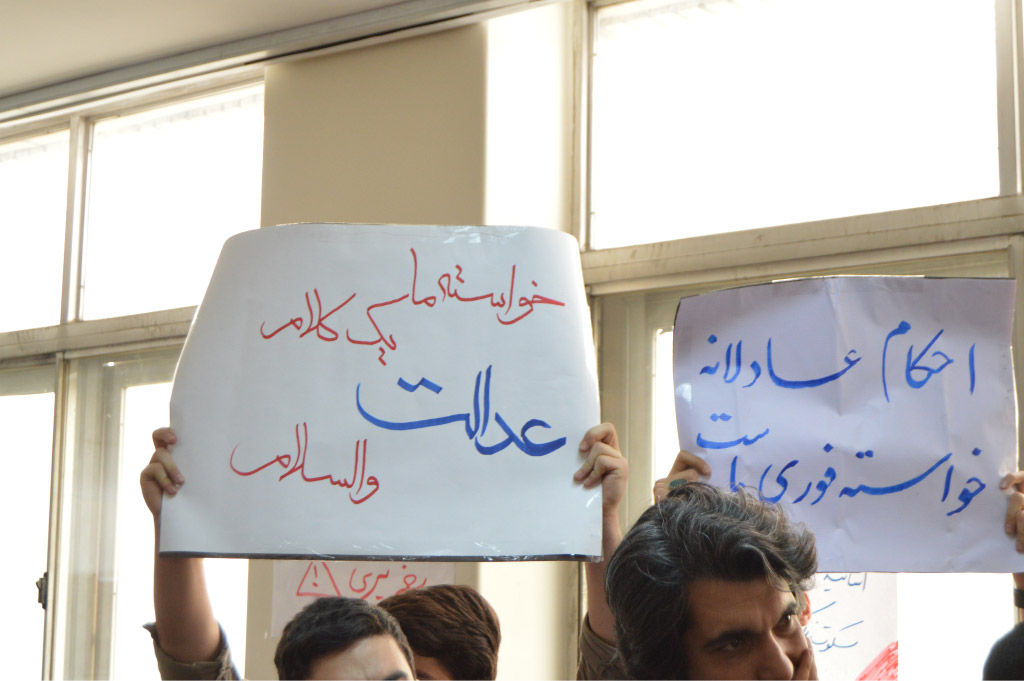 خواسته ما
یک کلام
عدالت
والسلام
احکام عادلانه
خواسته فوری ماست
سکوت